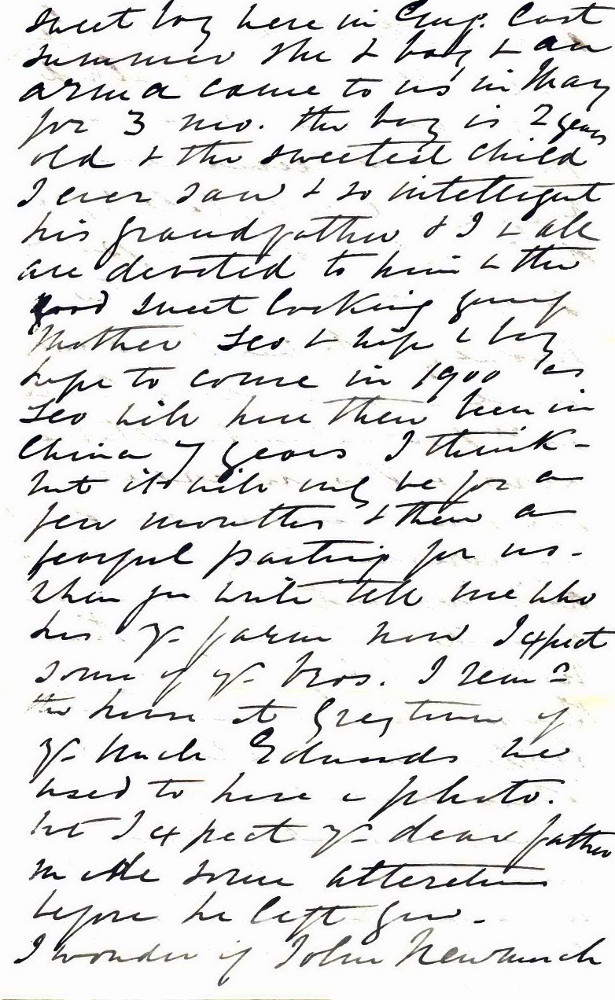 sweet boy here in Eng. Last
summer she & boy & an
arma came to us in May
for 3 mo. the boy is 2 years
old & the sweetest child
I ever saw & so intelligent
his grandfather & I & all
are devoted to him & the
good sweet looking young
Mother Leo & wife & boy
hope to come in 1900 as
Leo will have then been in
China 7 years I think -
but it will only be for a
few months & then a
fearful parting for us -
When you write tell me who
has yr farm now I expect
some of yr bros. I rem
the house at Greytown of
yr Uncle Edmunds we
used to have a photo.
but I expect yr dear father
made some alterations
before he left
I wonder if John Newmarch